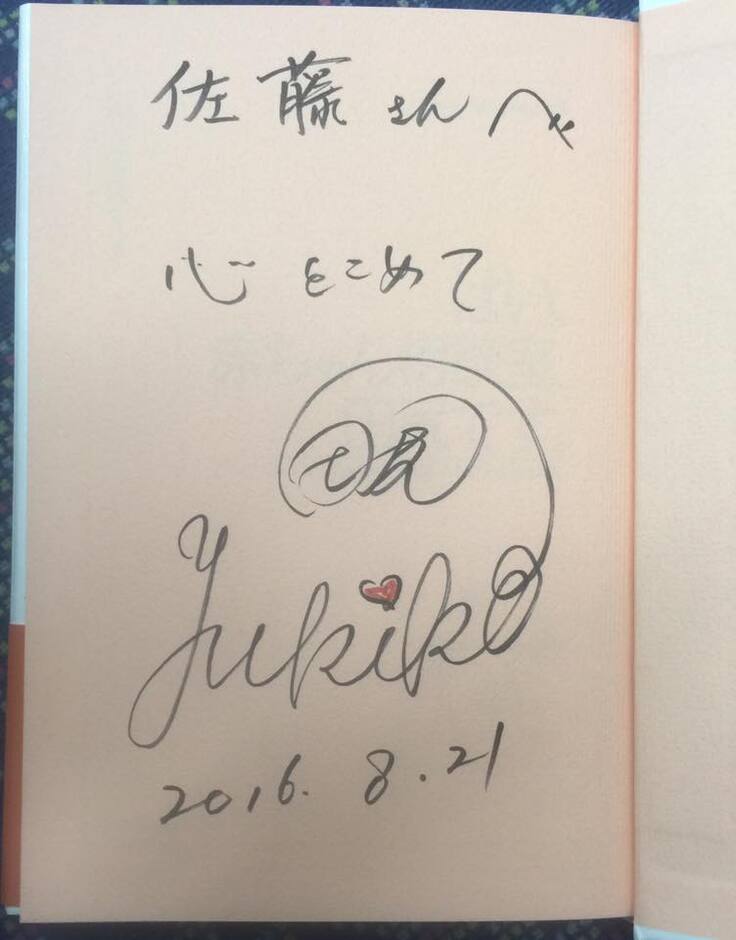 佐藤さんへ
心をこめて
Yukiko
2016. 8. 21